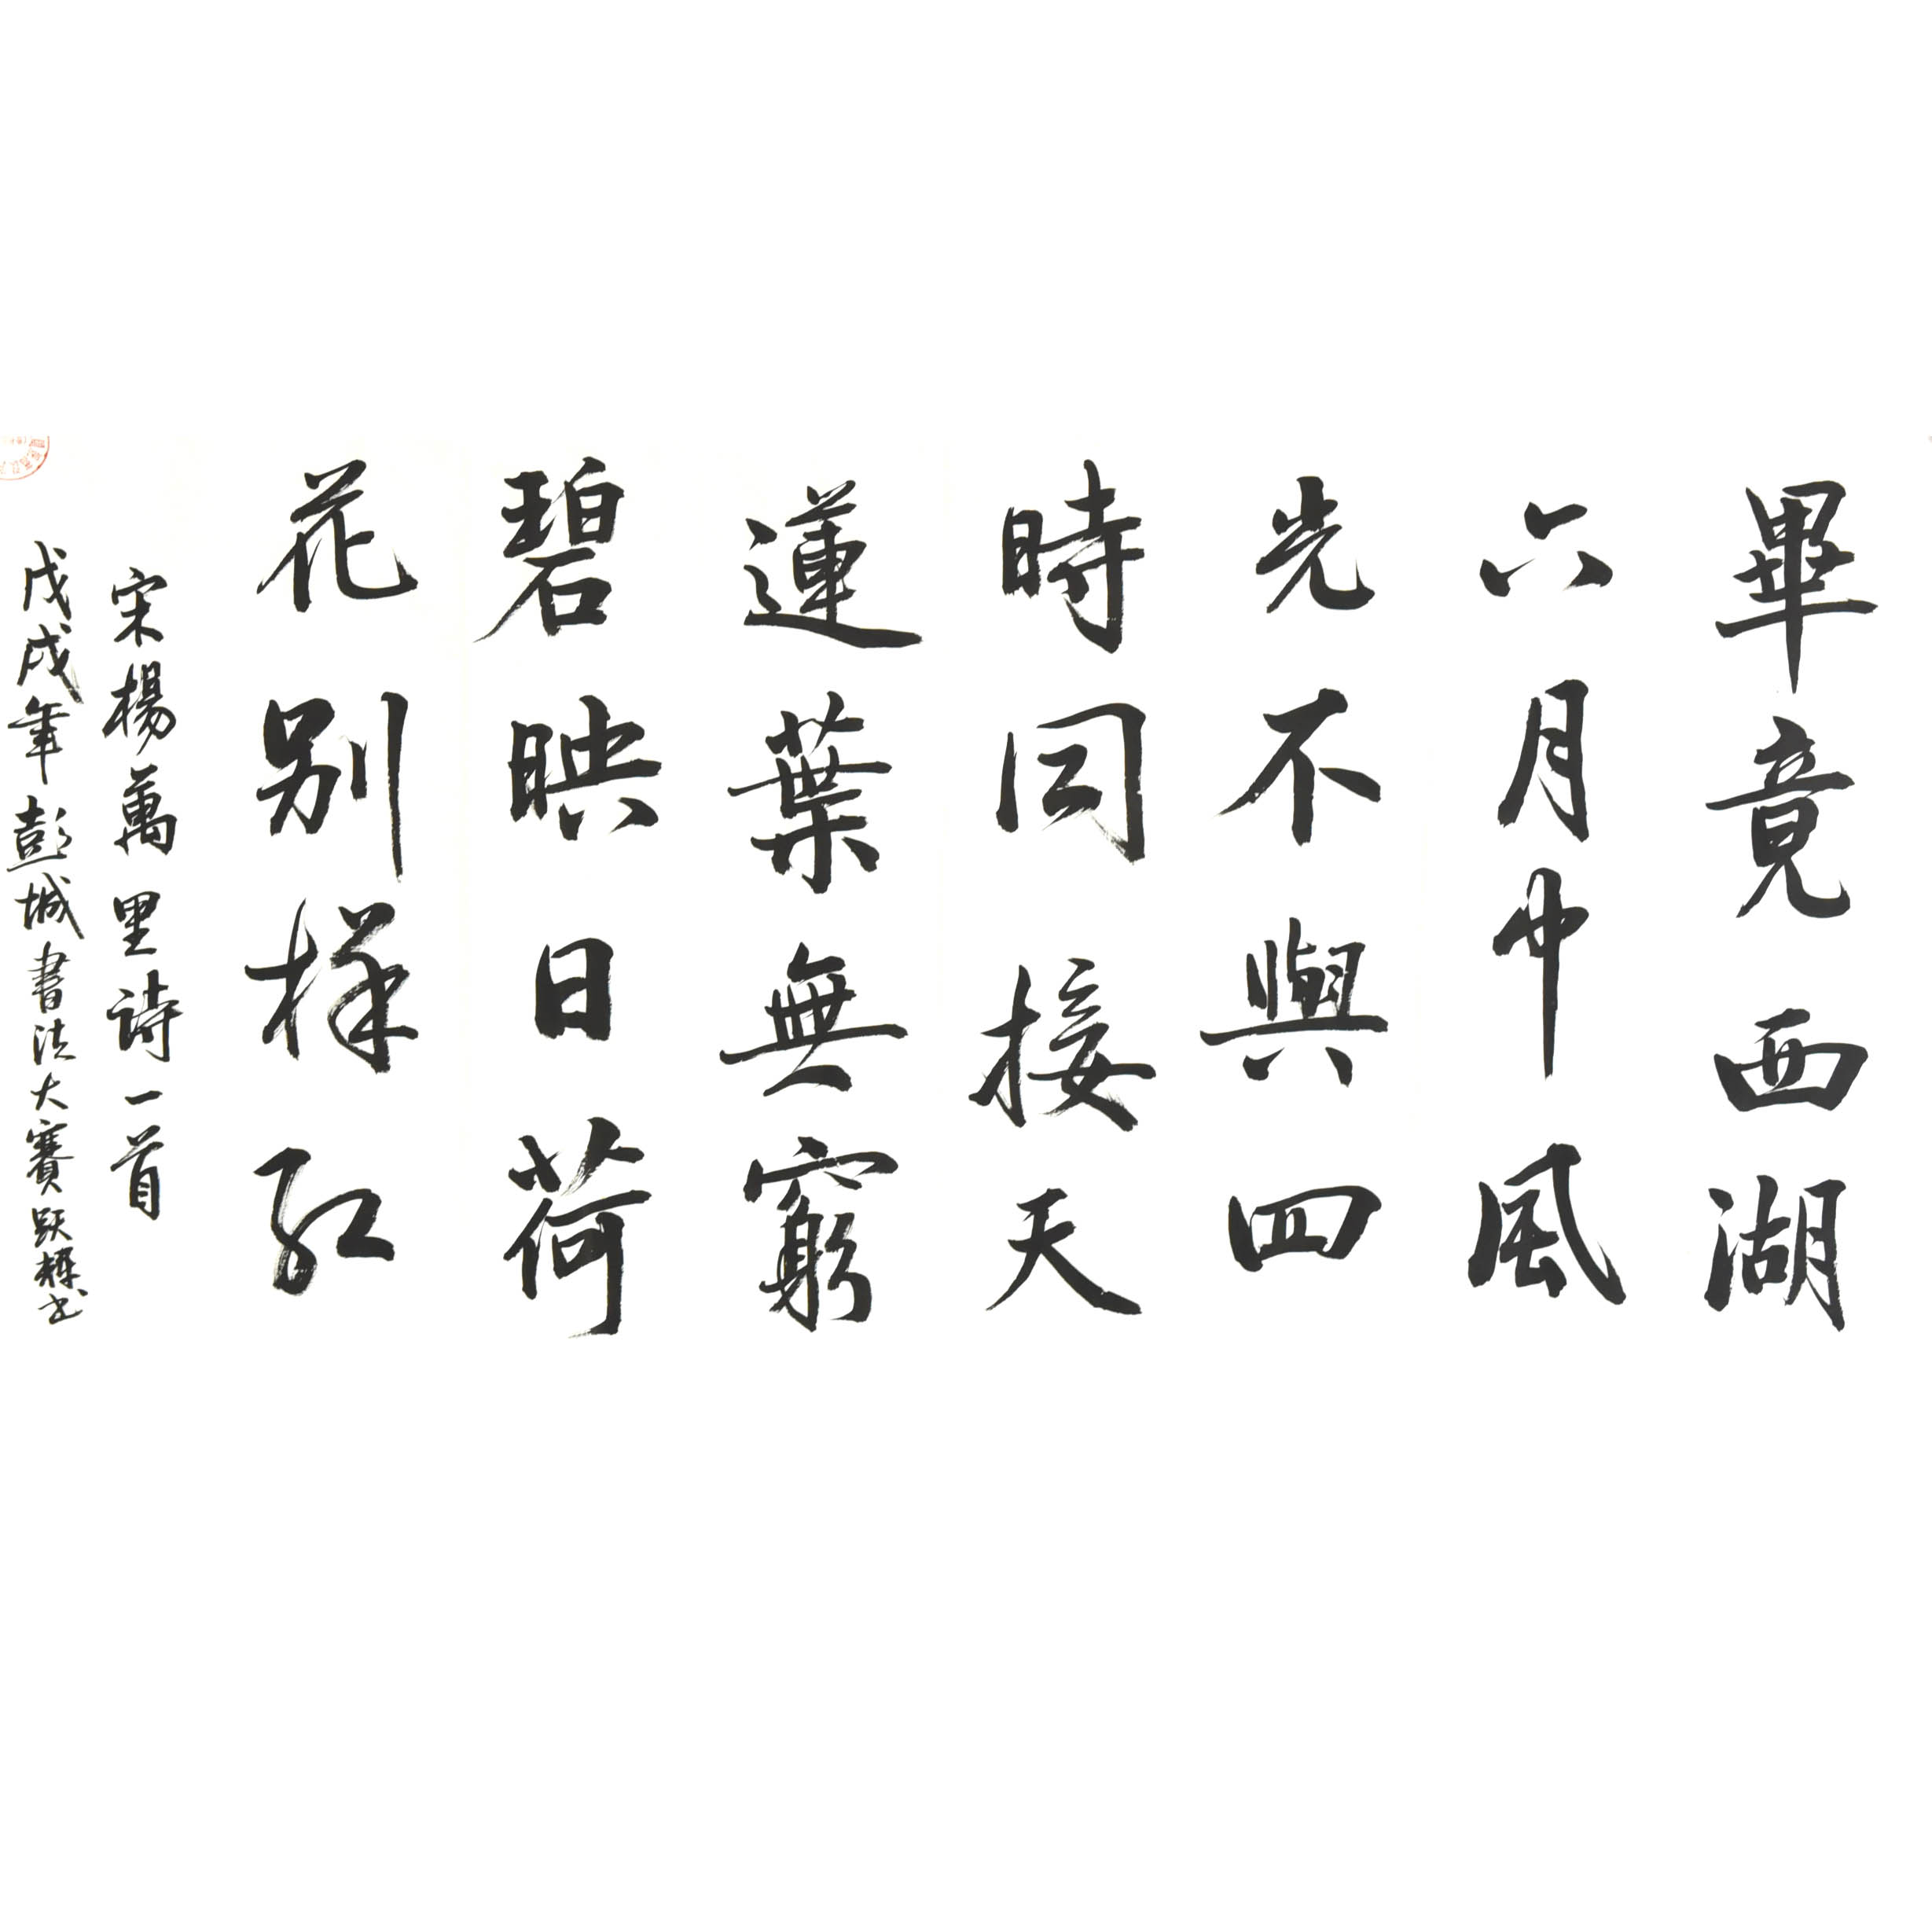 畢竟西湖
六月中風
光不與四
時同接天
蓮葉無窮
碧映日荷
花别樣紅
宋楊萬里詩一首
戊戌年彭城書法大賽跃輝书